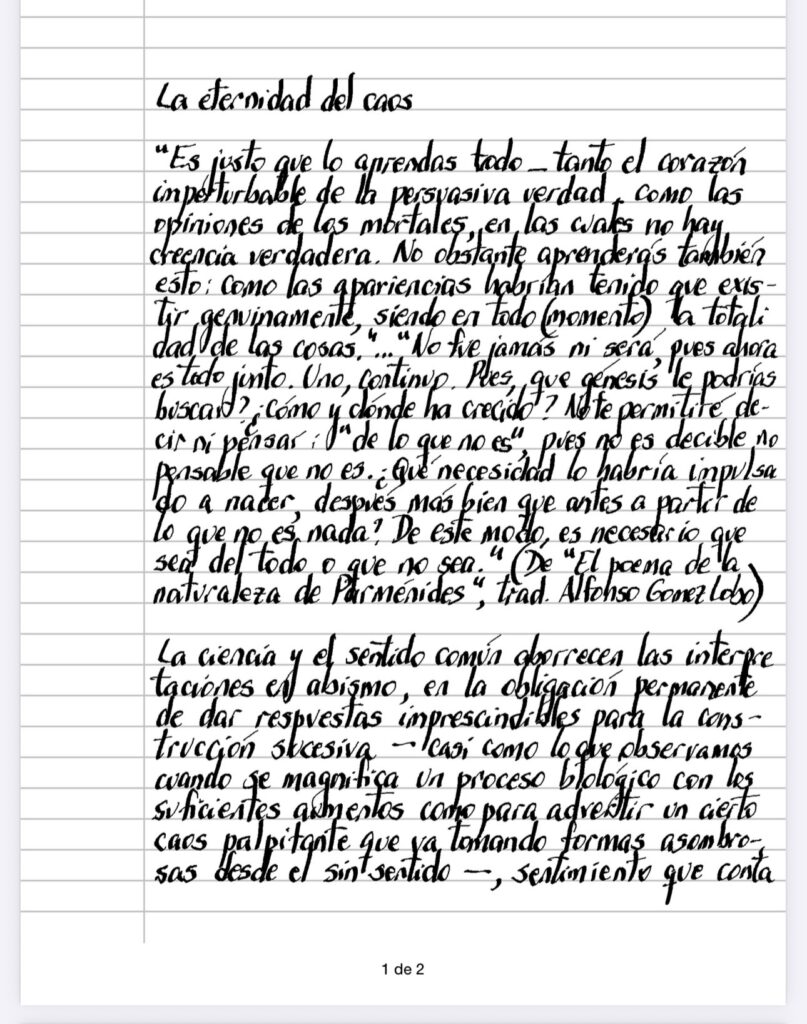 La eternidad del caos
"Es justo que lo aprendas todo – tanto el corazón
imperturbable de la persuasiva verdad, como las
opiniones de los mortales, en las cuales no hay
creencia verdadera. No obstante aprenderás también
esto: como las apariencias habrían tenido que exis-
tir genuinamente, siendo en todo (momento) la totali
dad de las cosas."..."No fue jamás ni será, pues ahora
es todo junto. Uno, continuo. Pues, que génesis le podrías
buscar? ¿Cómo y dónde ha crecido? No te permitiré de-
cir ni pensar: "de lo que no es", pues no es decible no
pensable que no es. ¿Qué necesidad lo habría impulsa
do a nacer, después más bien que antes a partir de
lo que no es nada? De este modo, es necesario que
sea del todo o que no sea." (De "El poema de la
naturaleza de Parménides", trad. Alfonso Gomez Lobo)
La ciencia y el sentido común aborrecen las interpre
taciones en abismo, en la obligación permanente
de dar respuestas imprescindibles para la cons-
trucción sucesiva – casi como lo que observamos
cuando se magnifica un proceso biológico con los
suficientes aumentos como para advertir un cierto
caos palpitante que va tomando formas asombro-
sas desde el sin sentido –, sentimiento que conta
1 de 2